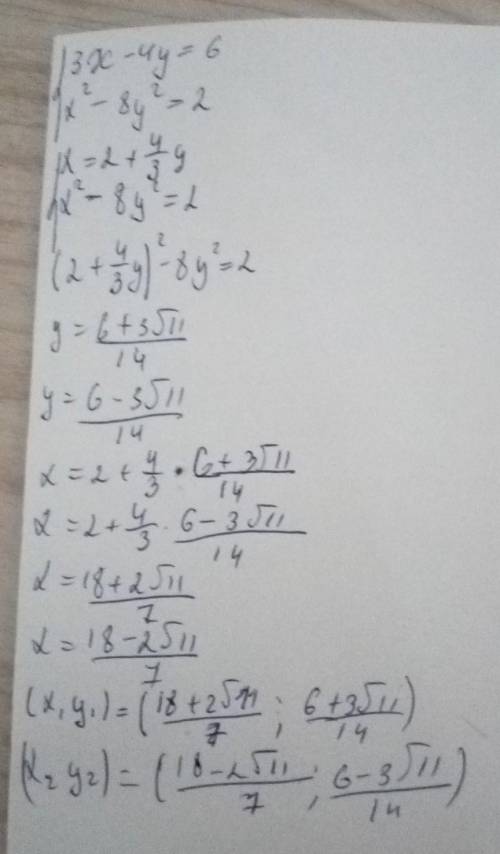 {3x - 4y = 6
{x² - 8y² = 2
{x = 2 + 4/3 y
{x² - 8y² = 2
(2 + 4/3 y)² - 8y² = 2
y = (6 + 3√11)/14
y = (6 - 3√11)/14
x = 2 + 4/3 · (6 + 3√11)/14
x = 2 + 4/3 · (6 - 3√11)/14
x = (18 + 2√11)/7
x = (18 - 2√11)/7
(x₁ y₁) = ((18 + 2√11)/7 ; (6 + 3√11)/14)
(x₂ y₂) = ((18 - 2√11)/7 ; (6 - 3√11)/14)